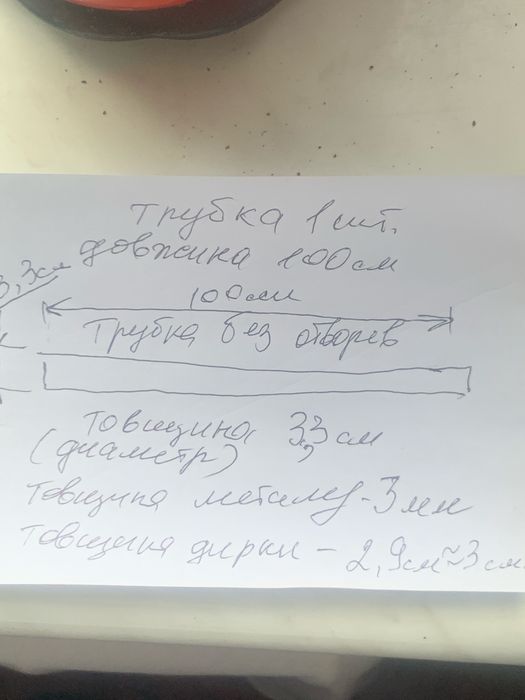 Трубка 1 шт.
довжина 100 см
3,3см
100см
Трубка без отворев
Товщина 3,3 см
(диаметр)
Товщина металу - 3 мм
Товщина дирки - 2,9см≈3см